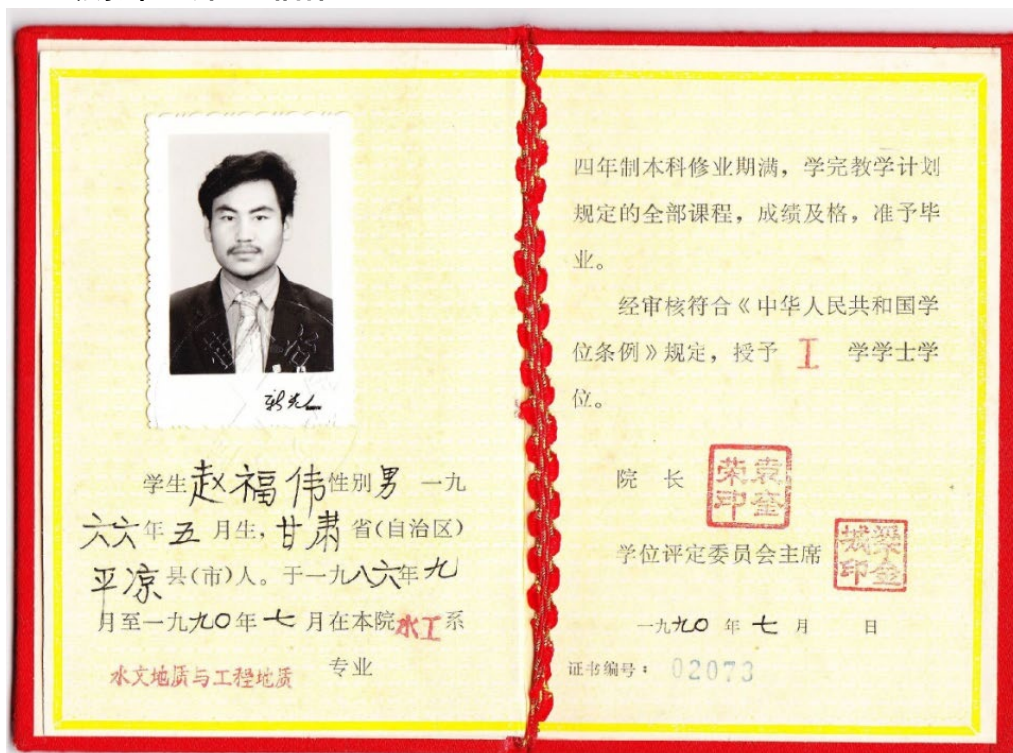 学生赵福伟性别男 一九
六六年五月生，甘肃省(自治区)
平凉县(市)人。于一九八六年九
月至一九九〇年七月在本院水工系
水文地质与工程地质 专业
四年制本科修业期满，学完教学计划
规定的全部课程，成绩及格，准予毕
业。
经审核符合《中华人民共和国学
位条例》规定，授予 工 学学士学
位。
院 长 袁奎荣印
学位评定委员会主席
一九九〇年七月 日
证书编号：02073